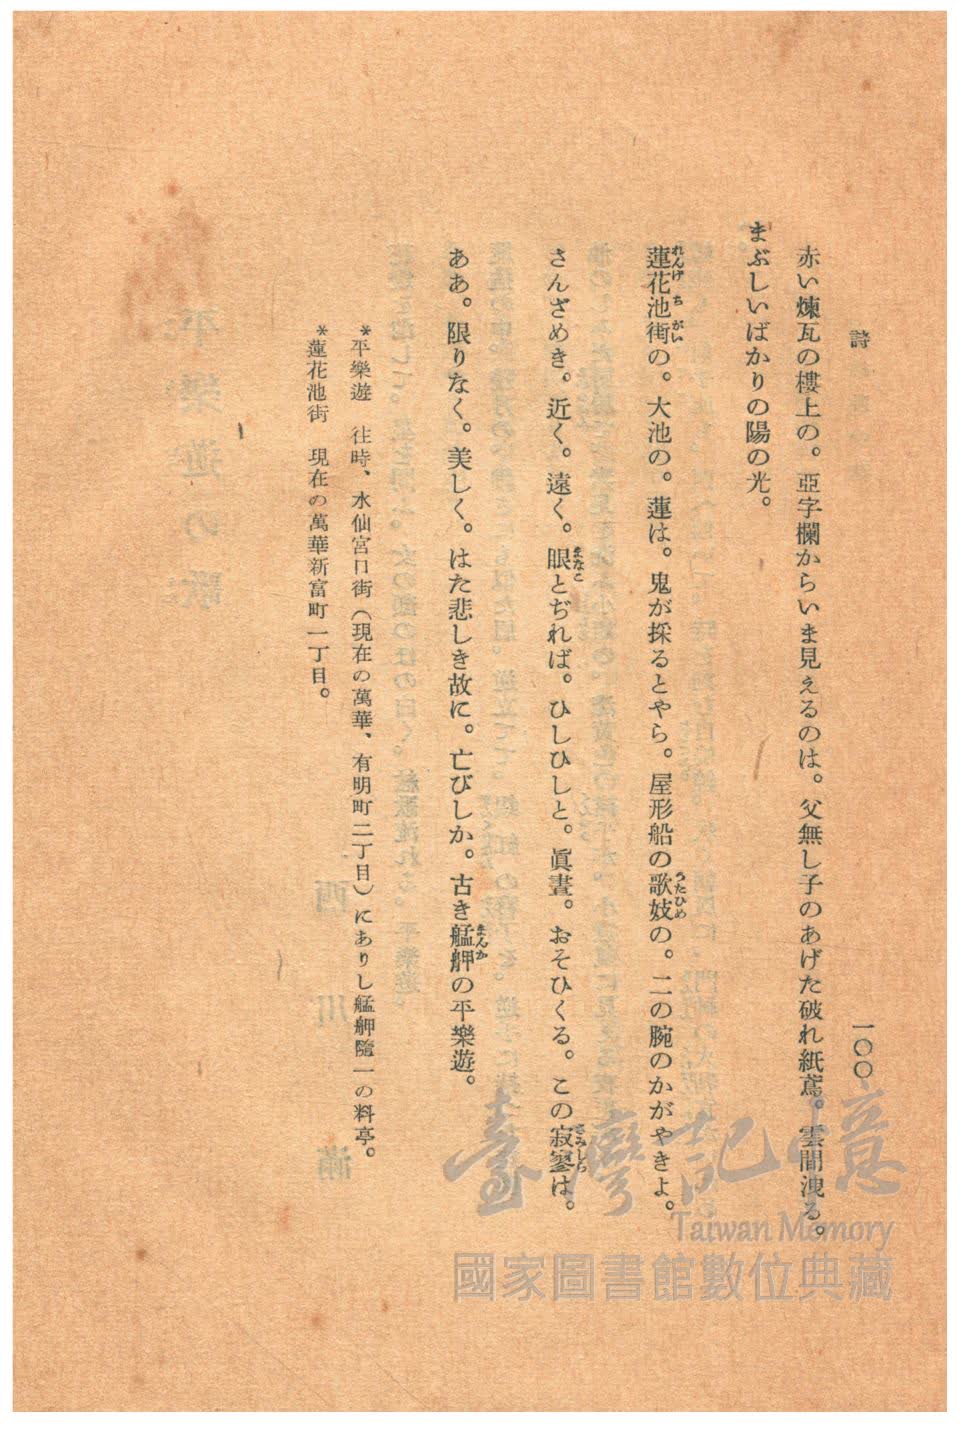 詩
一〇〇
赤い煉瓦の樓上の。亞字欄からいま見えるのは。父無し子のあげた破れ紙鳶。雲間洩る。
まぶしいばかりの陽の光。
蓮花池街の。大池の。蓮は。鬼が採るとやら。屋形船の歌妓の。二の腕のかがやきよ。
れんげちがい
うたひめ
さんざめき。近く。遠く。眼とぢれば。ひしひしと。眞晝。おそひくる。この寂寥は。
まなこ
さみしら
ああ。限りなく。美しく。はた悲しき故に。亡びしか。古き艋舺の平樂遊。
まんか
*平樂遊 往時、水仙宮口街(現在の萬華、有明町二丁目)にありし艋舺隨一の料亭。
*蓮花池街 現在の萬華新富町一丁目。
臺灣記憶
Taiwan Memory
國家圖書館數位典藏